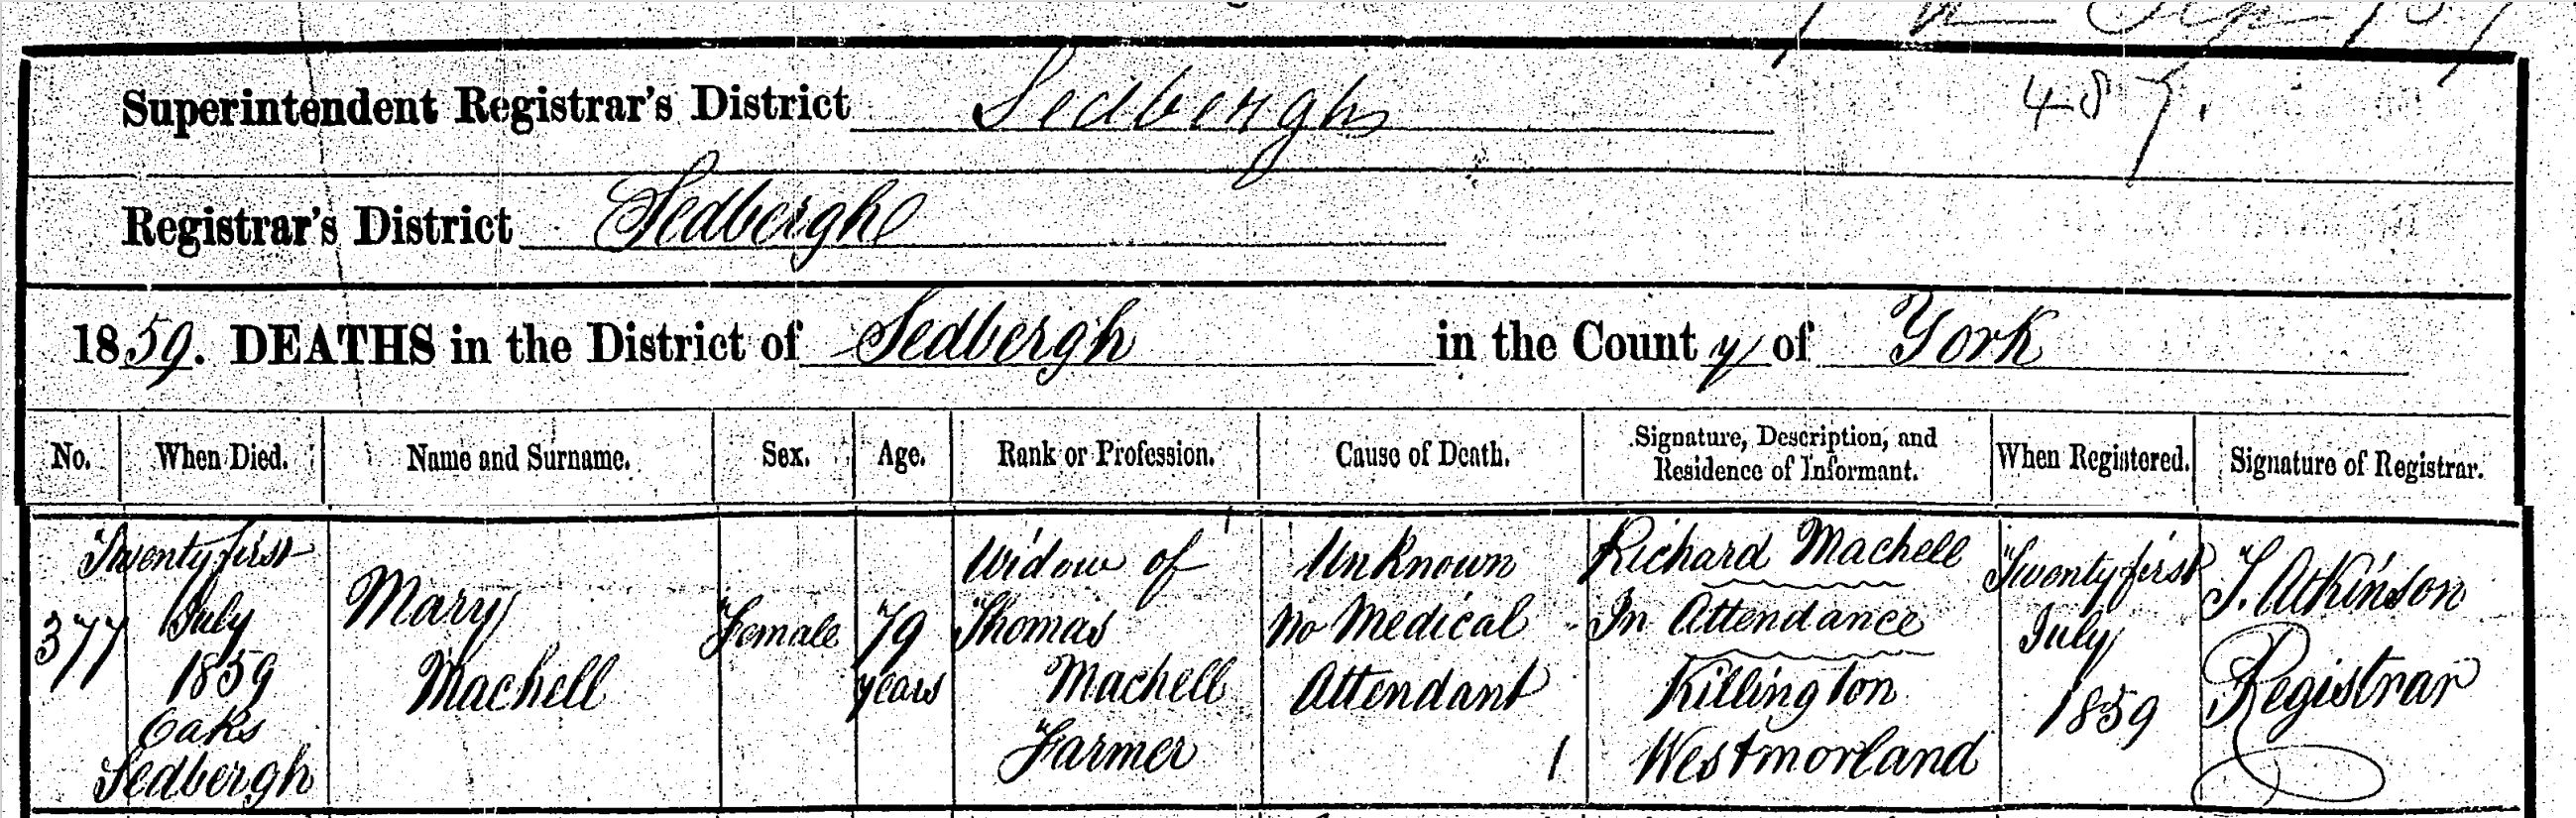 Superintendent Registrar's District Sedbergh 487.
Registrar's District Sedbergh
1859. DEATHS in the District of Sedbergh in the County of York
No. When Died. Name and Surname. Sex. Age. Rank or Profession. Cause of Death. Signature, Description, and Residence of Informant. When Registered. Signature of Registrar.
377
Twenty first
July
1859
Oaks
Sedbergh
Mary
Machell
Female
79
years
Widow of
Thomas
Machell
Farmer
Unknown
No Medical
Attendant
1
Richard Machell
In Attendance
Killington
Westmorland
Twenty first
July
1859
T. Atkinson
Registrar